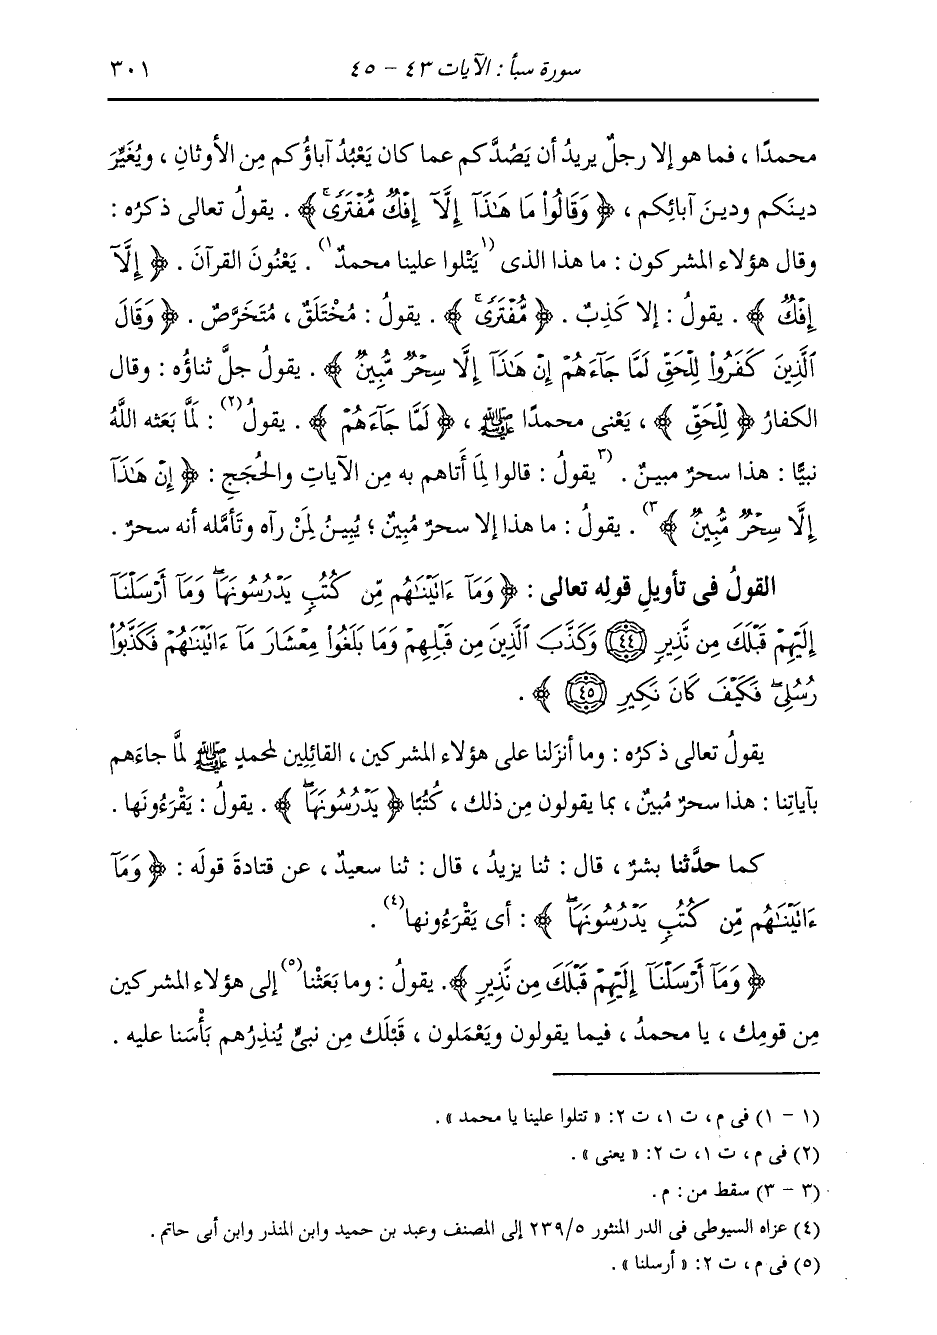 سورة سبأ : الآيات ٤٣ - ٤٥ ٣٠١
محمدًا ، فما هو إلا رجلٌ يريدُ أن يَصُدَّكم عما كان يَعْبُدُ آباؤُكم مِن الأوثانِ ، ويُغَيِّرَ
دينَكم ودينَ آبائِكم ، ﴿ وَقَالُوا۟ مَا هَٰذَآ إِلَّآ إِفْكٌ مُّفْتَرًى ﴾ . يقولُ تعالى ذكرُه :
وقال هؤلاء المشركون : ما هذا الذى (١يَتْلوا علينا محمدٌ١) . يَعْنُونَ القرآنَ . ﴿ إِلَّآ
إِفْكٌ ﴾ . يقولُ : إلا كَذِبٌ . ﴿ مُّفْتَرًى ﴾ . يقولُ : مُخْتَلَقٌ ، مُتَخَرَّصٌ . ﴿ وَقَالَ
ٱلَّذِينَ كَفَرُوا۟ لِلْحَقِّ لَمَّا جَآءَهُمْ إِنْ هَٰذَآ إِلَّا سِحْرٌ مُّبِينٌ ﴾ . يقولُ جلَّ ثناؤُه : وقال
الكفارُ ﴿ لِلْحَقِّ ﴾ ، يَعْنى محمدًا ﷺ ، ﴿ لَمَّا جَآءَهُمْ ﴾ . يقولُ(٢) : لَمَّا بَعَثه اللَّهُ
نبيًّا : هذا سحرٌ مبينٌ . (٣يقولُ : قالوا لِمَا أَتاهم به مِن الآياتِ والحُجَجِ : ﴿ إِنْ هَٰذَآ
إِلَّا سِحْرٌ مُّبِينٌ ﴾٣) . يقولُ : ما هذا إلا سحرٌ مُبِينٌ ؛ يُبِينُ لمَنْ رآه وتَأَمَّله أنه سحرٌ .
القولُ فى تأويلِ قولِه تعالى : ﴿ وَمَآ ءَاتَيْنَٰهُم مِّن كُتُبٍ يَدْرُسُونَهَا ۖ وَمَآ أَرْسَلْنَآ
إِلَيْهِمْ قَبْلَكَ مِن نَّذِيرٍ ٤٤ وَكَذَّبَ ٱلَّذِينَ مِن قَبْلِهِمْ وَمَا بَلَغُوا۟ مِعْشَارَ مَآ ءَاتَيْنَٰهُمْ فَكَذَّبُوا۟
رُسُلِى ۖ فَكَيْفَ كَانَ نَكِيرِ ٤٥ ﴾ .
يقولُ تعالى ذكرُه : وما أنزَلنا على هؤلاء المشركين ، القائِلِين لمحمدٍ ﷺ لمَّا جاءَهم
بآياتِنا : هذا سحرٌ مُبينٌ ، بما يقولون مِن ذلك ، كُتُبًا ﴿ يَدْرُسُونَهَا ۖ ﴾ . يقولُ : يَقْرَءُونَها .
كما حدَّثنا بشرٌ ، قال : ثنا يزيدُ ، قال : ثنا سعيدٌ ، عن قتادةَ قولَه : ﴿ وَمَآ
ءَاتَيْنَٰهُم مِّن كُتُبٍ يَدْرُسُونَهَا ۖ ﴾ : أى يَقْرَءُونها(٤) .
﴿ وَمَآ أَرْسَلْنَآ إِلَيْهِمْ قَبْلَكَ مِن نَّذِيرٍ ﴾ . يقولُ : وما بَعَثْنا(٥) إلى هؤلاء المشركين
مِن قومِك ، يا محمدُ ، فيما يقولون ويَعْمَلون ، قَبْلَك مِن نبىٍّ يُنذِرُهم بَأْسَنا عليه .
(١ - ١) فى م، ت ١، ت ٢: « تتلوا علينا يا محمد » .
(٢) فى م، ت ١، ت ٢: « يعنى » .
(٣ - ٣) سقط من : م .
(٤) عزاه السيوطى فى الدر المنثور ٢٣٩/٥ إلى المصنف وعبد بن حميد وابن المنذر وابن أبى حاتم .
(٥) فى م، ت ٢: « أرسلنا » .